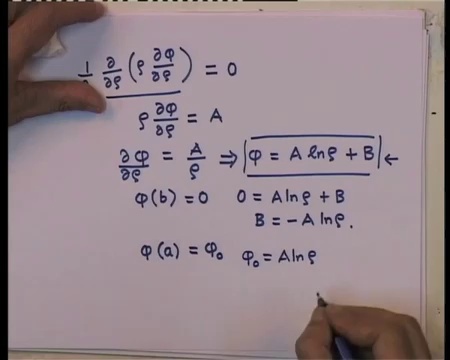 1/ ∂/∂ρ (ρ ∂φ/∂ρ) = 0
ρ ∂φ/∂ρ = A
∂φ/∂ρ = A/ρ ⇒ |φ = A lnρ + B| ←
φ(b) = 0 0 = A lnρ + B
B = -A lnρ.
φ(a) = φ₀ φ₀ = A lnρ